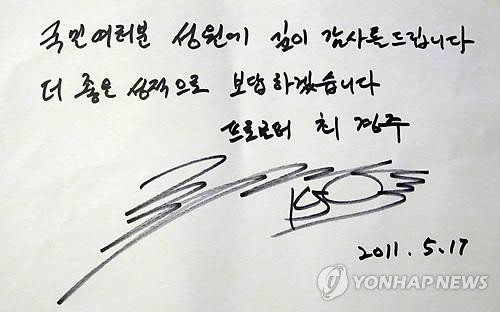 국민여러분 성원에 깊이 감사를 드립니다
더 좋은 성적으로 보답하겠습니다
프로골퍼 최경주
2011. 5. 17
YONHAP NEWS